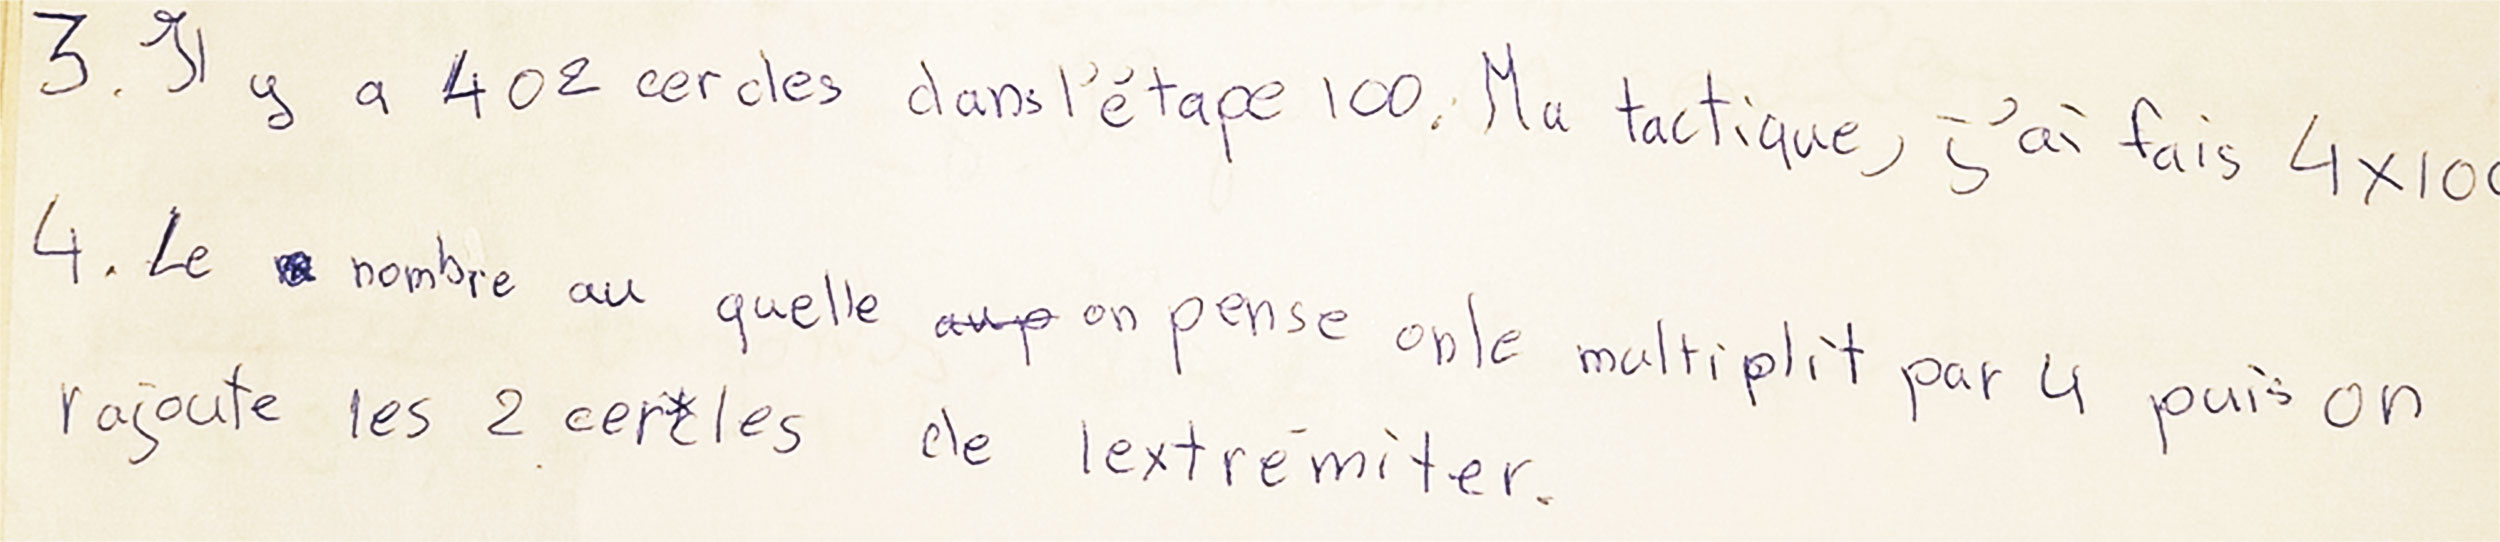 3. Il y a 402 cercles dans l'étape 100. Ma tactique, j'ai fais 4x100
4. Le nombre au quelle on pense on le multiplit par 4 puis on
rajoute les 2 cercles de lextrémiter.